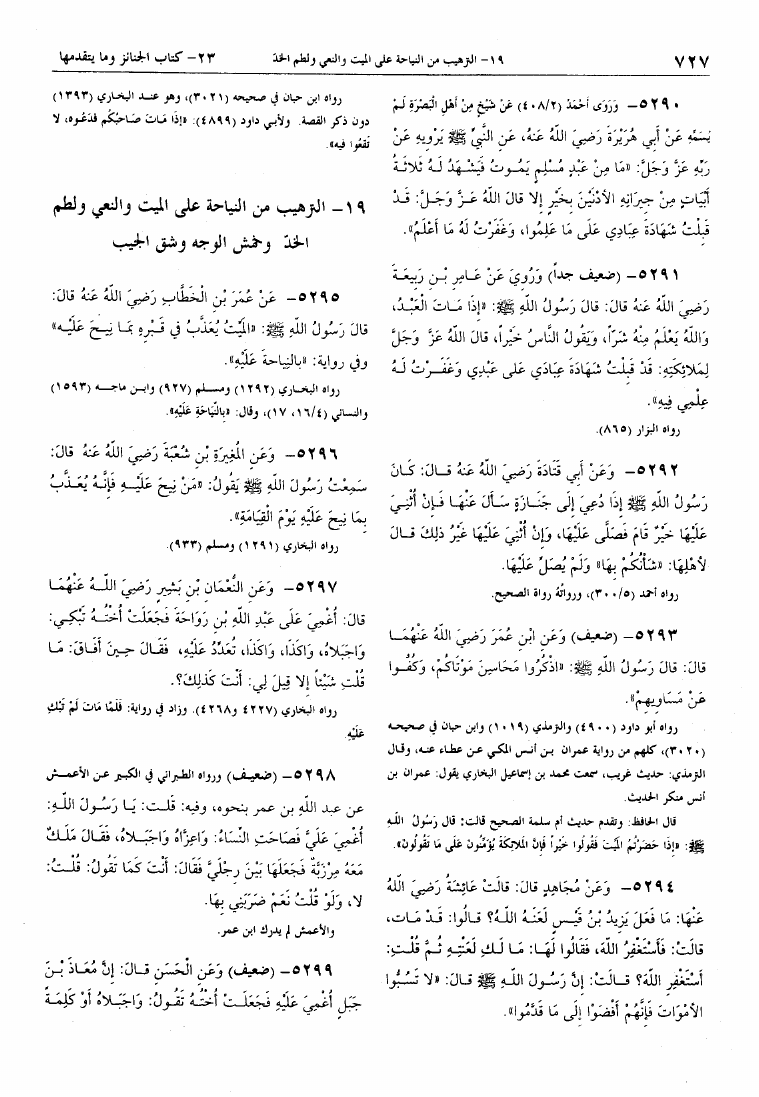 ٧٢٧
١٩- الترهيب من النياحة على الميت والنعي ولطم الخدّ
٢٣- كتاب الجنائز وما يتقدمها
٥٢٩٠- وَرَوَى أَحْمَدُ (٤٠٨/٢) عَنْ شَيْخٍ مِنْ أَهْلِ الْبَصْرَةِ لَمْ
يُسَمِّهِ عَنْ أَبِي هُرَيْرَةَ رَضِيَ اللهُ عَنْهُ، عَنِ النَّبِيِّ ﷺ يَرْوِيهِ عَنْ
رَبِّهِ عَزَّ وَجَلَّ: «مَا مِنْ عَبْدٍ مُسْلِمٍ يَمُوتُ فَيَشْهَدُ لَهُ ثَلَاثَةُ
أَبْيَاتٍ مِنْ جِيرَانِهِ الأَدْنَيْنَ بِخَيْرٍ إِلا قَالَ اللهُ عَزَّ وَجَلَّ: قَدْ
قَبِلْتُ شَهَادَةَ عِبَادِي عَلَى مَا عَلِمُوا، وَغَفَرْتُ لَهُ مَا أَعْلَمُ».
٥٢٩١- (ضعيف جداً) وَرُوِيَ عَنْ عَامِرِ بْنِ رَبِيعَةَ
رَضِيَ اللهُ عَنْهُ قَالَ: قَالَ رَسُولُ اللهِ ﷺ: «إِذَا مَاتَ الْعَبْدُ،
وَاللهُ يَعْلَمُ مِنْهُ شَرّاً، وَيَقُولُ النَّاسُ خَيْراً، قَالَ اللهُ عَزَّ وَجَلَّ
لِمَلَائِكَتِهِ: قَدْ قَبِلْتُ شَهَادَةَ عِبَادِي عَلَى عَبْدِي وَغَفَرْتُ لَهُ
عِلْمِي فِيهِ».
رواه البزار (٨٦٥).
٥٢٩٢- وَعَنْ أَبِي قَتَادَةَ رَضِيَ اللهُ عَنْهُ قَالَ: كَانَ
رَسُولُ اللهِ ﷺ إِذَا دُعِيَ إِلَى جَنَازَةٍ سَأَلَ عَنْهَا فَإِنْ أُثْنِيَ
عَلَيْهَا خَيْرٌ قَامَ فَصَلَّى عَلَيْهَا، وَإِنْ أُثْنِيَ عَلَيْهَا غَيْرُ ذَلِكَ قَالَ
لأَهْلِهَا: «شَأْنُكُمْ بِهَا» وَلَمْ يُصَلِّ عَلَيْهَا.
رواه أحمد (٣٠٠/٥)، ورواتهُ رواة الصحيح.
٥٢٩٣- (ضعيف) وَعَنِ ابْنِ عُمَرَ رَضِيَ اللهُ عَنْهُمَا
قَالَ: قَالَ رَسُولُ اللهِ ﷺ: «اذْكُرُوا مَحَاسِنَ مَوْتَاكُمْ، وَكُفُّوا
عَنْ مَسَاوِيهِمْ».
رواه أبو داود (٤٩٠٠) والترمذي (١٠١٩) وابن حبان في صحيحه
(٣٠٢٠)، كلهم من رواية عمران بن أنس المكي عن عطاء عنه، وقال
الترمذي: حديث غريب، سمعت محمد بن إسماعيل البخاري يقول: عمران بن
أنس منكر الحديث.
قال الحافظ: وتقدم حديث أم سلمة الصحيح قالت: قَالَ رَسُولُ اللهِ
ﷺ: «إِذَا حَضَرْتُمُ الْمَيِّتَ فَقُولُوا خَيْراً فَإِنَّ الْمَلائِكَةَ يُؤَمِّنُونَ عَلَى مَا تَقُولُونَ».
٥٢٩٤- وَعَنْ مُجَاهِدٍ قَالَ: قَالَتْ عَائِشَةُ رَضِيَ اللهُ
عَنْهَا: مَا فَعَلَ يَزِيدُ بْنُ قَيْسٍ لَعَنَهُ اللهُ؟ قَالُوا: قَدْ مَاتَ،
قَالَتْ: فَأَسْتَغْفِرُ اللهَ، فَقَالُوا لَهَا: مَا لَكِ لَعَنْتِهِ ثُمَّ قُلْتِ:
أَسْتَغْفِرُ اللهَ؟ قَالَتْ: إِنَّ رَسُولَ اللهِ ﷺ قَالَ: «لا تَسُبُّوا
الأَمْوَاتَ فَإِنَّهُمْ أَفْضَوْا إِلَى مَا قَدَّمُوا».
رواه ابن حبان في صحيحه (٣٠٢١)، وهو عند البخاري (١٣٩٣)
دون ذكر القصة. ولأبي داود (٤٨٩٩): «إِذَا مَاتَ صَاحِبُكُم فَدَعُوه، لا
تَقَعُوا فيه».
١٩- الترهيب من النياحة على الميت والنعي ولطم
الخدّ وخمش الوجه وشق الجيب
٥٢٩٥- عَنْ عُمَرَ بْنِ الْخَطَّابِ رَضِيَ اللهُ عَنْهُ قَالَ:
قَالَ رَسُولُ اللهِ ﷺ: «الْمَيِّتُ يُعَذَّبُ فِي قَبْرِهِ بِمَا نِيحَ عَلَيْهِ»
وفي رواية: «بِالنِيَاحَةِ عَلَيْهِ».
رواه البخاري (١٢٩٢) ومسلم (٩٢٧) وابن ماجه (١٥٩٣)
والنسائي (١٦/٤، ١٧)، وقال: «بِالنِّيَاحَةِ عَلَيْهِ».
٥٢٩٦- وَعَنِ الْمُغِيرَةِ بْنِ شُعْبَةَ رَضِيَ اللهُ عَنْهُ قَالَ:
سَمِعْتُ رَسُولَ اللهِ ﷺ يَقُولُ: «مَنْ نِيحَ عَلَيْهِ فَإِنَّهُ يُعَذَّبُ
بِمَا نِيحَ عَلَيْهِ يَوْمَ الْقِيَامَةِ».
رواه البخاري (١٢٩١) ومسلم (٩٣٣).
٥٢٩٧- وَعَنِ النُّعْمَانِ بْنِ بَشِيرٍ رَضِيَ اللهُ عَنْهُمَا
قَالَ: أُغْمِيَ عَلَى عَبْدِ اللهِ بْنِ رَوَاحَةَ فَجَعَلَتْ أُخْتُهُ تَبْكِي:
وَاجَبَلاهُ، وَاكَذَا، وَاكَذَا، تُعَدِّدُ عَلَيْهِ، فَقَالَ حِينَ أَفَاقَ: مَا
قُلْتِ شَيْئاً إِلا قِيلَ لِي: أَنْتَ كَذَلِكَ؟.
رواه البخاري (٤٢٢٧ و٤٢٦٨). وزاد في رواية: فَلَمَّا مَاتَ لَمْ تَبْكِ
عَلَيْهِ.
٥٢٩٨- (ضعيف) ورواه الطبراني في الكبير عن الأعمش
عن عبد الله بن عمر بنحوه، وفيه: قلت: يَا رَسُولَ اللهِ:
أُغْمِيَ عَلَيَّ فَصَاحَتِ النِّسَاءُ: وَاعِزَّاهُ وَاجَبَلاهُ، فَقَالَ مَلَكٌ
مَعَهُ مِرْزَبَّةٌ فَجَعَلَهَا بَيْنَ رِجْلَيَّ فَقَالَ: أَنْتَ كَمَا تَقُولُ: قُلْتُ:
لا، وَلَوْ قُلْتُ نَعَمْ ضَرَبَنِي بِهَا.
والأعمش لم يدرك ابن عمر.
٥٢٩٩- (ضعيف) وَعَنِ الْحَسَنِ قَالَ: إِنَّ مُعَاذَ بْنَ
جَبَلٍ أُغْمِيَ عَلَيْهِ فَجَعَلَتْ أُخْتُهُ تَقُولُ: وَاجَبَلاهُ أَوْ كَلِمَةً